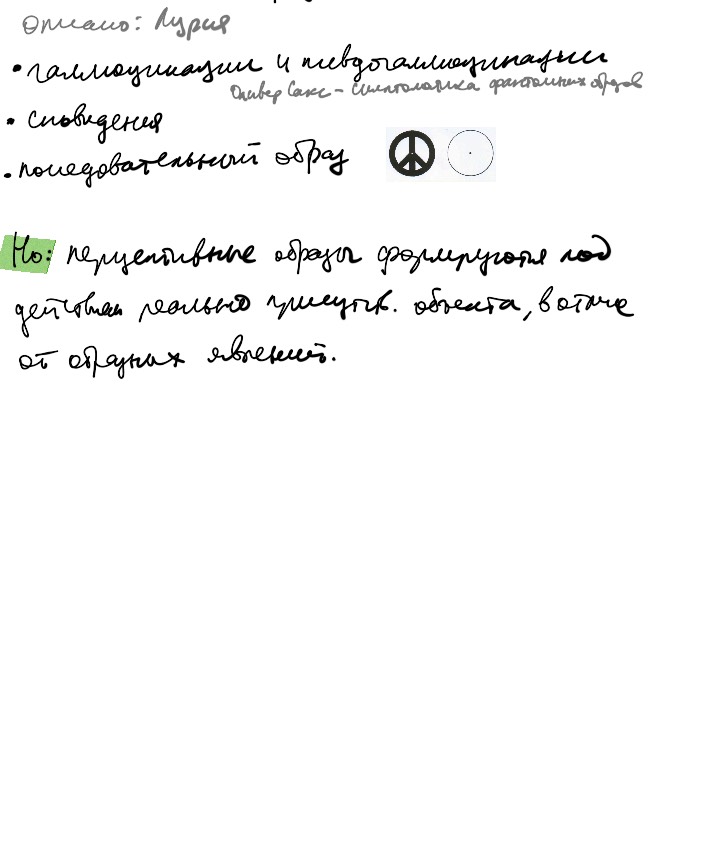 описано: Лурия
• галлюцинации и псевдогаллюцинации
Оливер Сакс – симптоматика фантомных образов
• сновидения
• последовательный образ
Но: перцептивные образы формируются под
действием реально присутств. объекта, в отличие
от образных явлений.